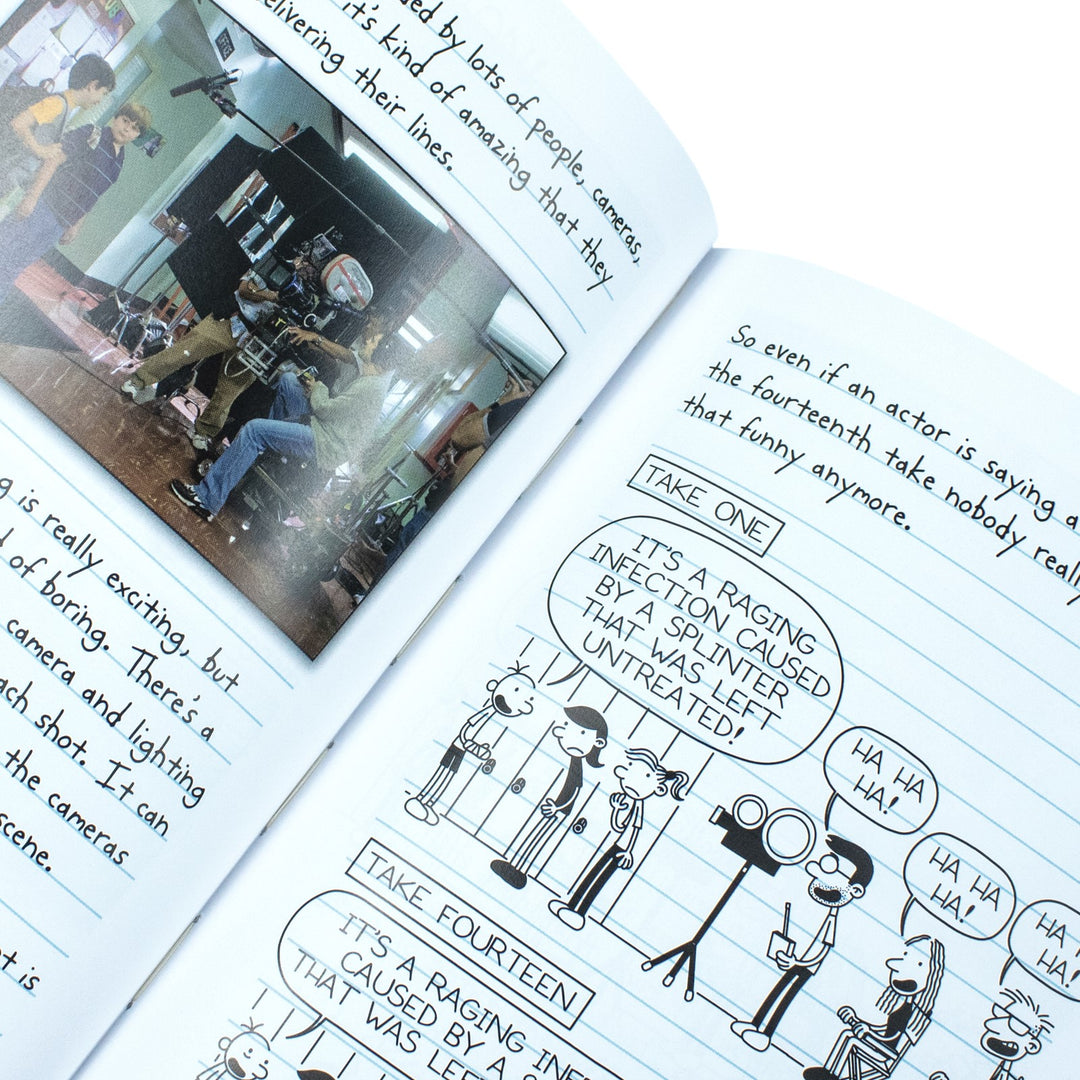 by lots of people, cameras,
it's kind of amazing that they
delivering their lines.
is really exciting, but
of boring. There's a
camera and lighting
each shot. It can
the cameras
scene.
is
So even if an actor is saying a
the fourteenth take nobody really
that funny anymore.
TAKE ONE
IT'S A RAGING
INFECTION CAUSED
BY A SPLINTER
THAT WAS LEFT
UNTREATED!
HA HA
HA!
HA HA
HA!
HA
HA!
TAKE FOURTEEN
IT'S A RAGING
CAUSED BY A
THAT WAS LEFT